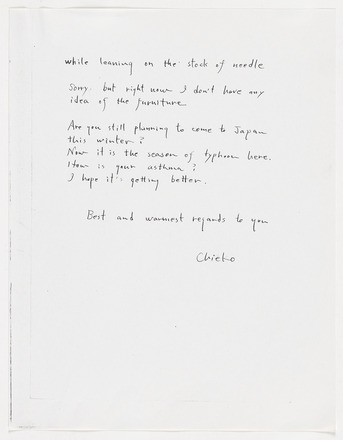 while leaning on the stock of needle
Sorry. but right now I don't have any
idea of the furniture
Are you still planning to come to Japan
this winter?
Now it is the season of typhoon here.
How is your asthma?
I hope it's getting better.
Best and warmest regards to you
Chieko